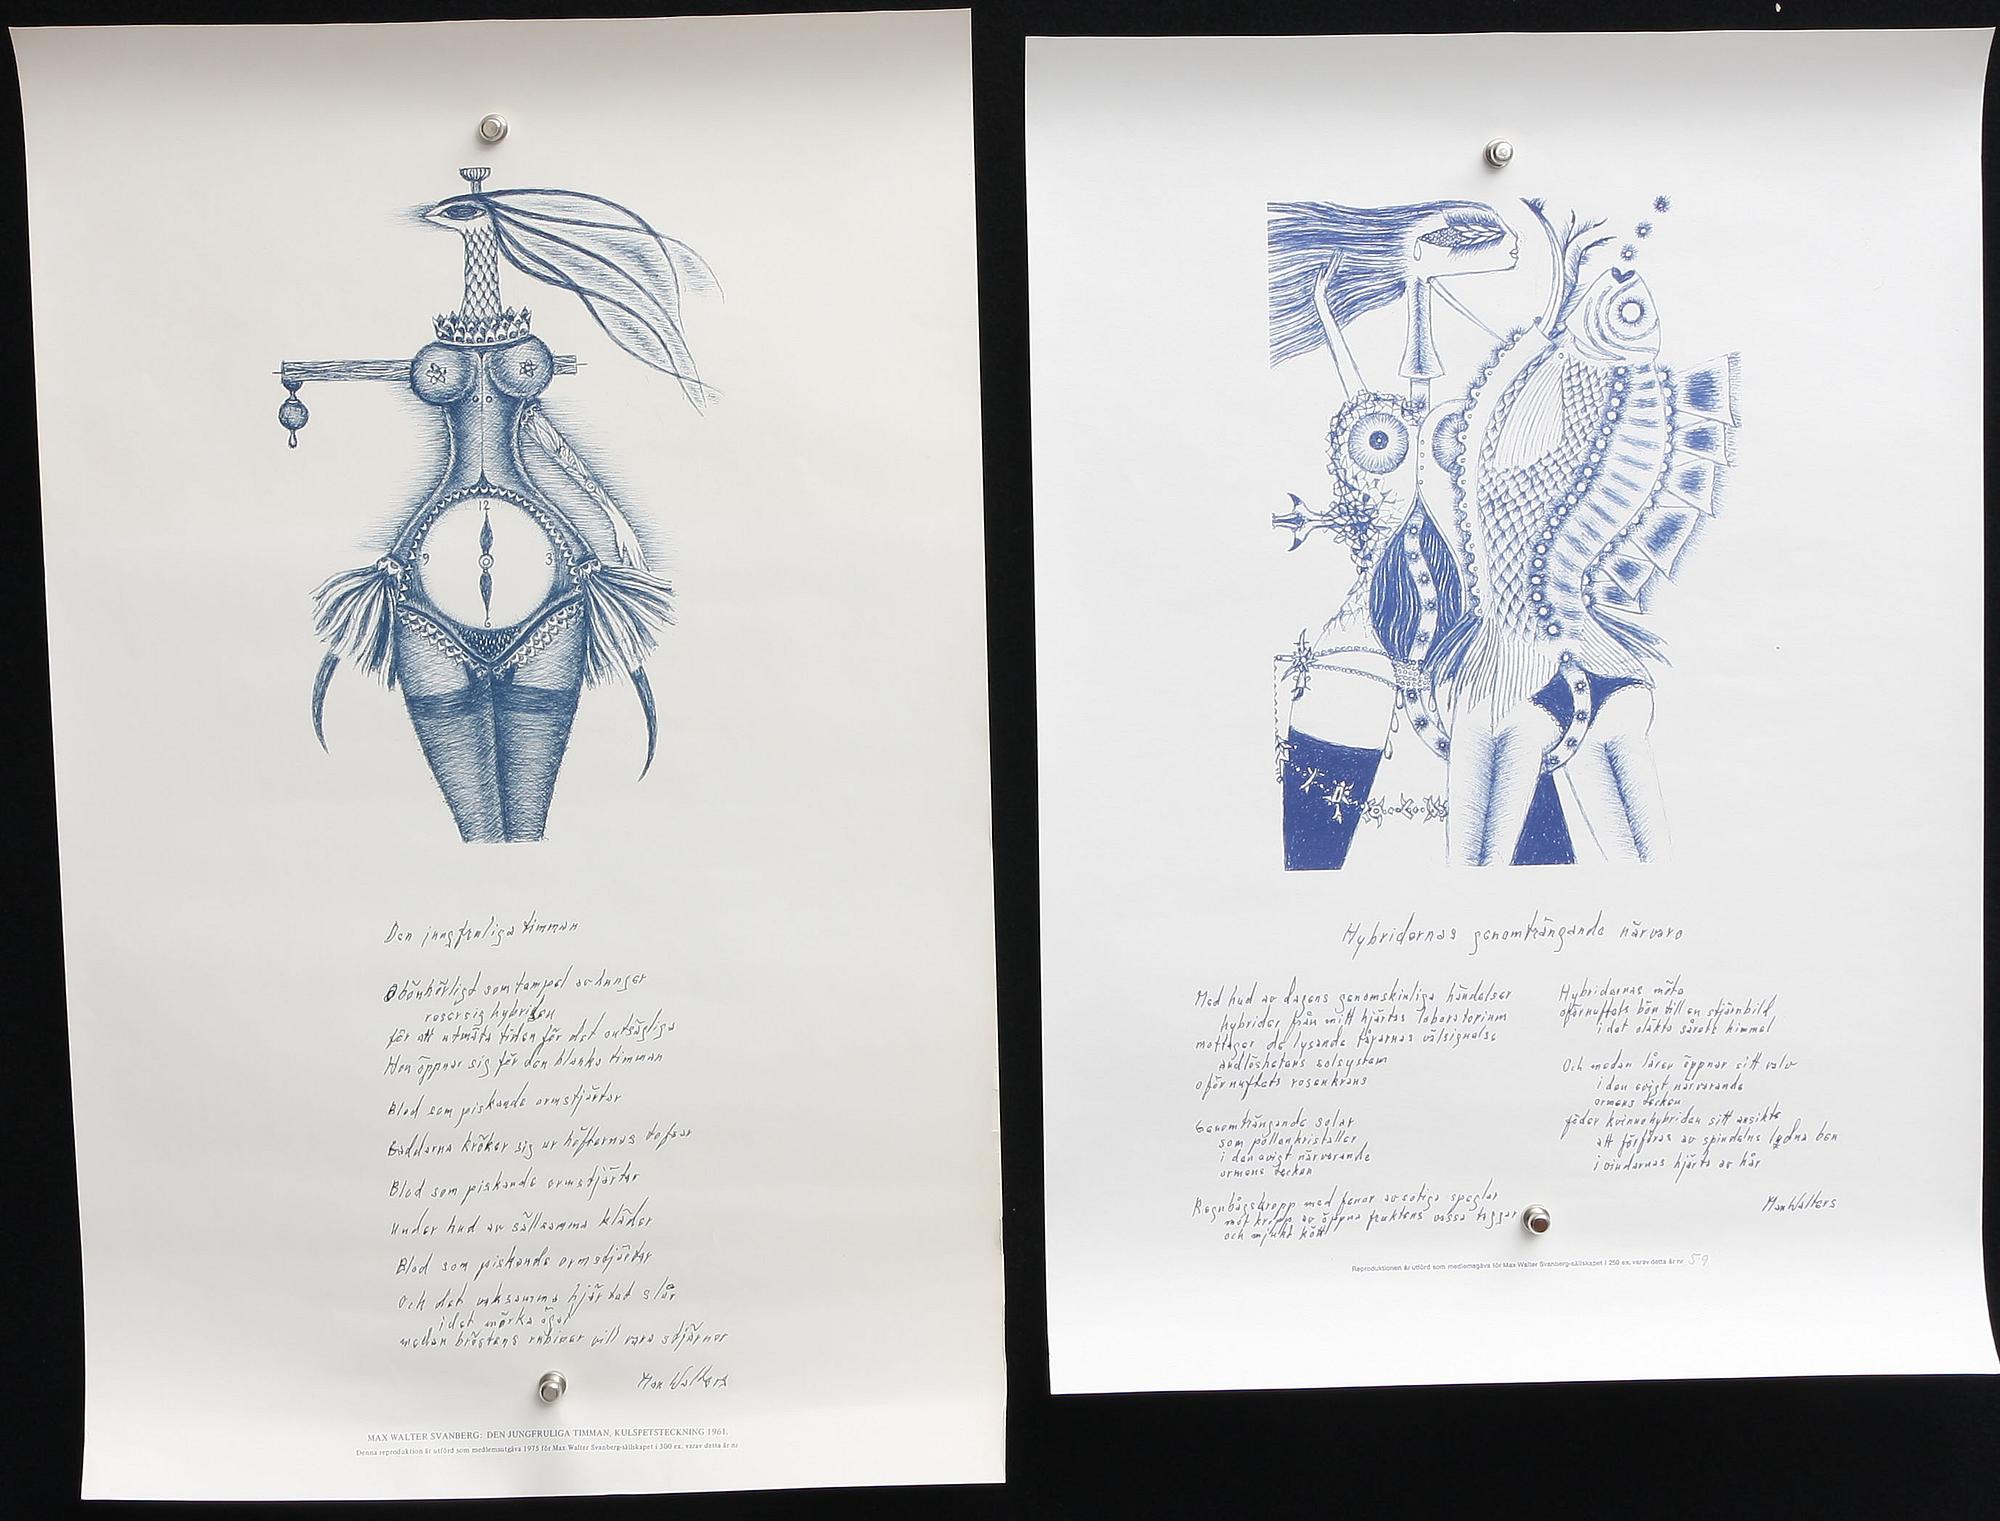 12
9
3
6
Den jungfruliga timman
Obönhörligt som tampel av hunger
reser sig hybriden
för att utmäta tiden för det outsägliga
Hon öppnar sig för den blanka timman
Blod som piskande ormstjärtar
Gaddarna kröker sig ur höfternas tofsar
Blod som piskande ormstjärtar
Under hud av sällsamma kläder
Blod som piskande ormstjärtar
Och det vaksamma hjärtat slår
i det mörka ögat
medan bröstens rubiner vill vara stjärnor
Max Walters
MAX WALTER SVANBERG: DEN JUNGFRULIGA TIMMAN, KULSPETSTECKNING 1961.
Denna reproduktion är utförd som medlemsutgåva 1975 för Max Walter Svanberg-sällskapet i 300 ex. varav detta är nr
Hybridernas genomträngande närvaro
Med hud av dagens genomskinliga händelser
hybrider från mitt hjärtas laboratorium
mottager de lysande tårarnas välsignelse
ändlöshetens solsystem
oförnuftets rosenkrans
Genomträngande solar
som pollenkristaller
i den evigt närvarande
ormens tecken
Regnbågskropp med fenor av sotiga speglar
mot kropp av öppna fruktens vassa taggar
och mjukt kött
Hybridernas möte
oförnuftets bön till en stjärnbild
i det oläkta sårets himmel
Och medan låren öppnar sitt valv
i den evigt närvarande
ormens tecken
föder kvinnohybriden sitt ansikte
att förföras av spindelns ludna ben
i vindarnas hjärta av hår
Max Walters
Reproduktionen är utförd som medlemsgåva för Max Walter Svanberg-sällskapet i 250 ex. varav detta är nr 59